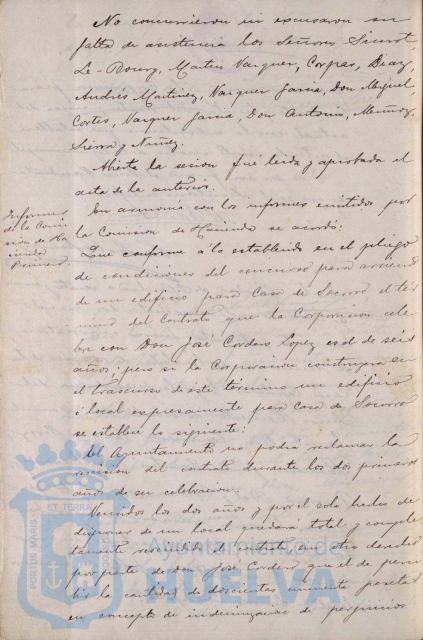 No concurrieron ni excusaron su
falta de asistencia los Señores Siurot,
Le-Bourg, Martin Vazquez, Corpas, Diaz,
Andrés Martinez, Vazquez Garcia, Don Miguel,
Cortes, Vazquez Garcia, Don Antonio, Muñoz,
Sierra y Nuñez.
Abierta la sesion fué leida y aprobada el
acta de la anterior.
Informes
de la Comi
sion de Ha
cienda
Primero.
En armonia con los informes emitidos por
la Comision de Hacienda se acordó:
Que conforme á lo establecido en el pliego
de condiciones del concurso para arriendo
de un edificio para Casa de Socorro el tér
mino del contrato que la Corporacion cele
bre con Don José Cordero Lopez es el de seis
años; pero si la Corporacion construyera en
el trascurso de éste término un edificio
ó local expresamente para casa de Socorro
se establece lo siguiente:
El Ayuntamiento no podrá reclamar la
rescision del contrato durante los dos primeros
años de su celebracion.
Vencidos los dos años y por el solo hecho de
disponer de un local quedará total y comple
tamente rescindido el contrato sin otro derecho
por parte de Don José Cordero que el de perci
bir la cantidad de doscientas cincuenta pesetas
en concepto de indemnizacion de perjuicios
PORTUS MARIS ET TERRAE
Ayuntamiento de
HUELVA